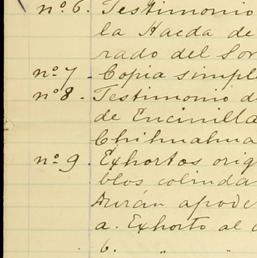 nº 6. Testimonio
la Haeda de
rado del Sor
nº 7. Copia simpl
nº 8. Testimonio d
de Encinilla
Chihuahua
nº 9. Exhortos orig
blos colinda
Durán apode
a. Exhorto al
b. " "